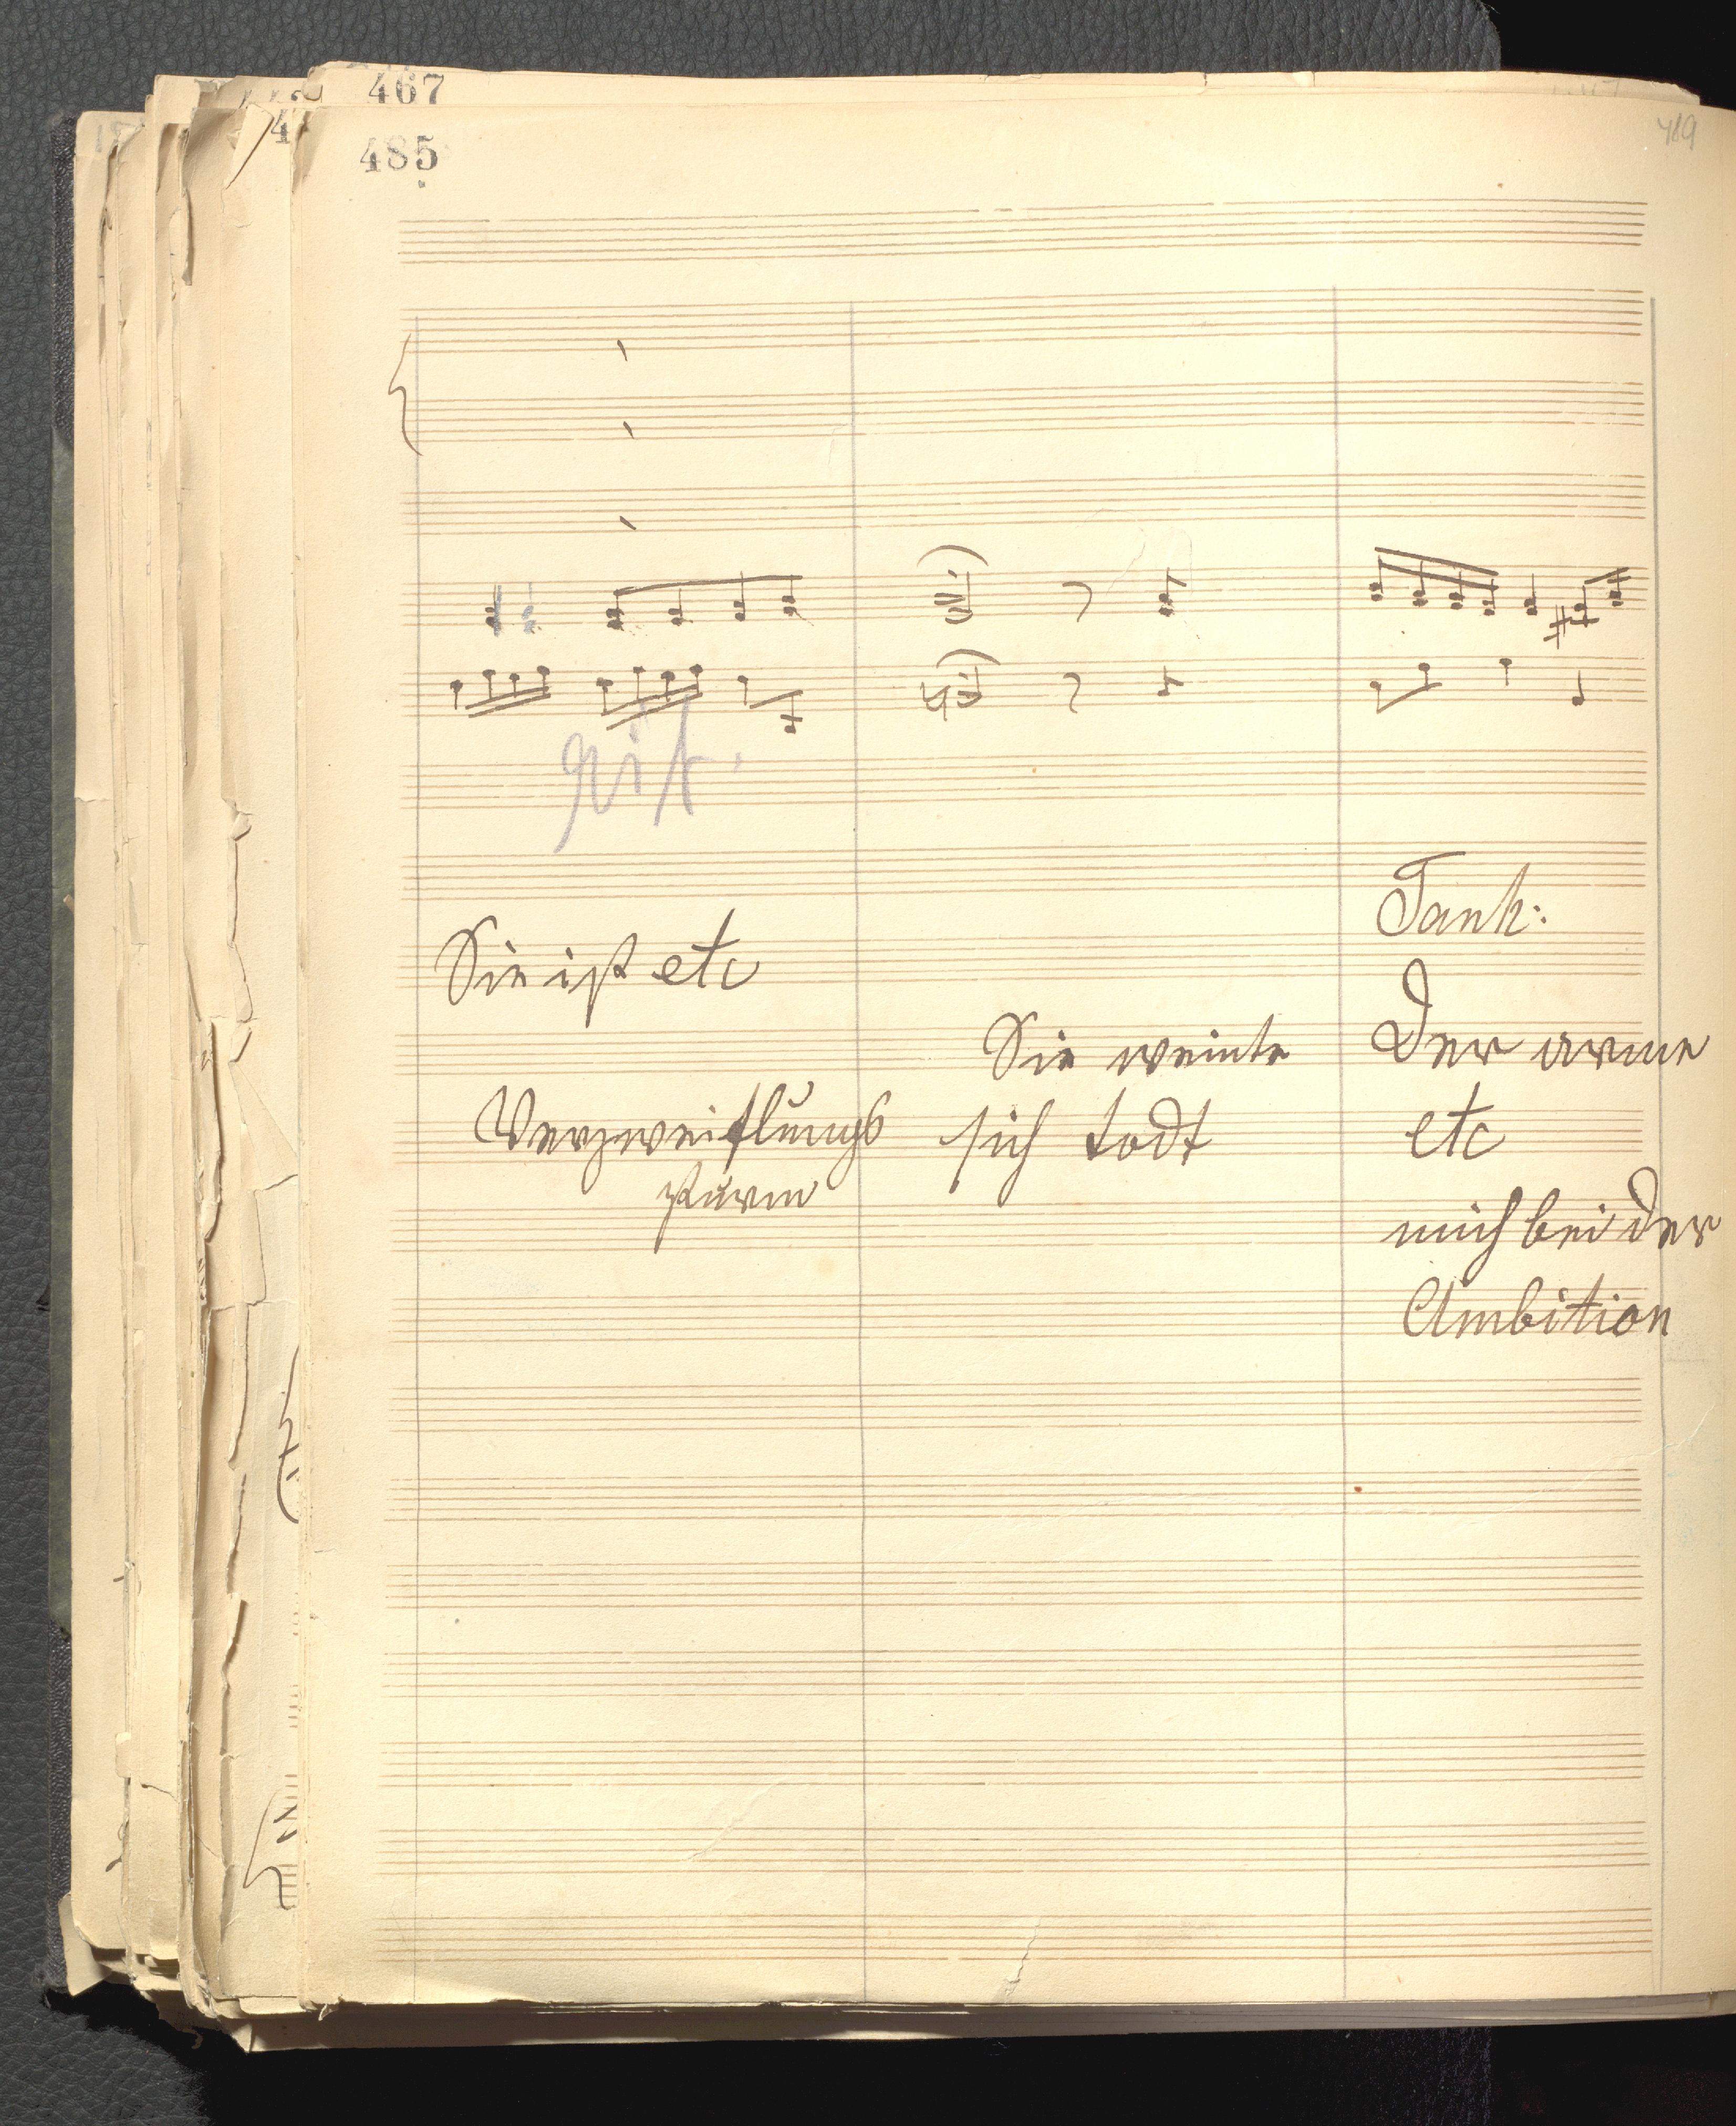 467
485
419
rit.
Tank:
Sie ist etc
Sie weinte
Der arme
Verzweiflungs
sich todt
etc
sturm
mich bei der
Ambition